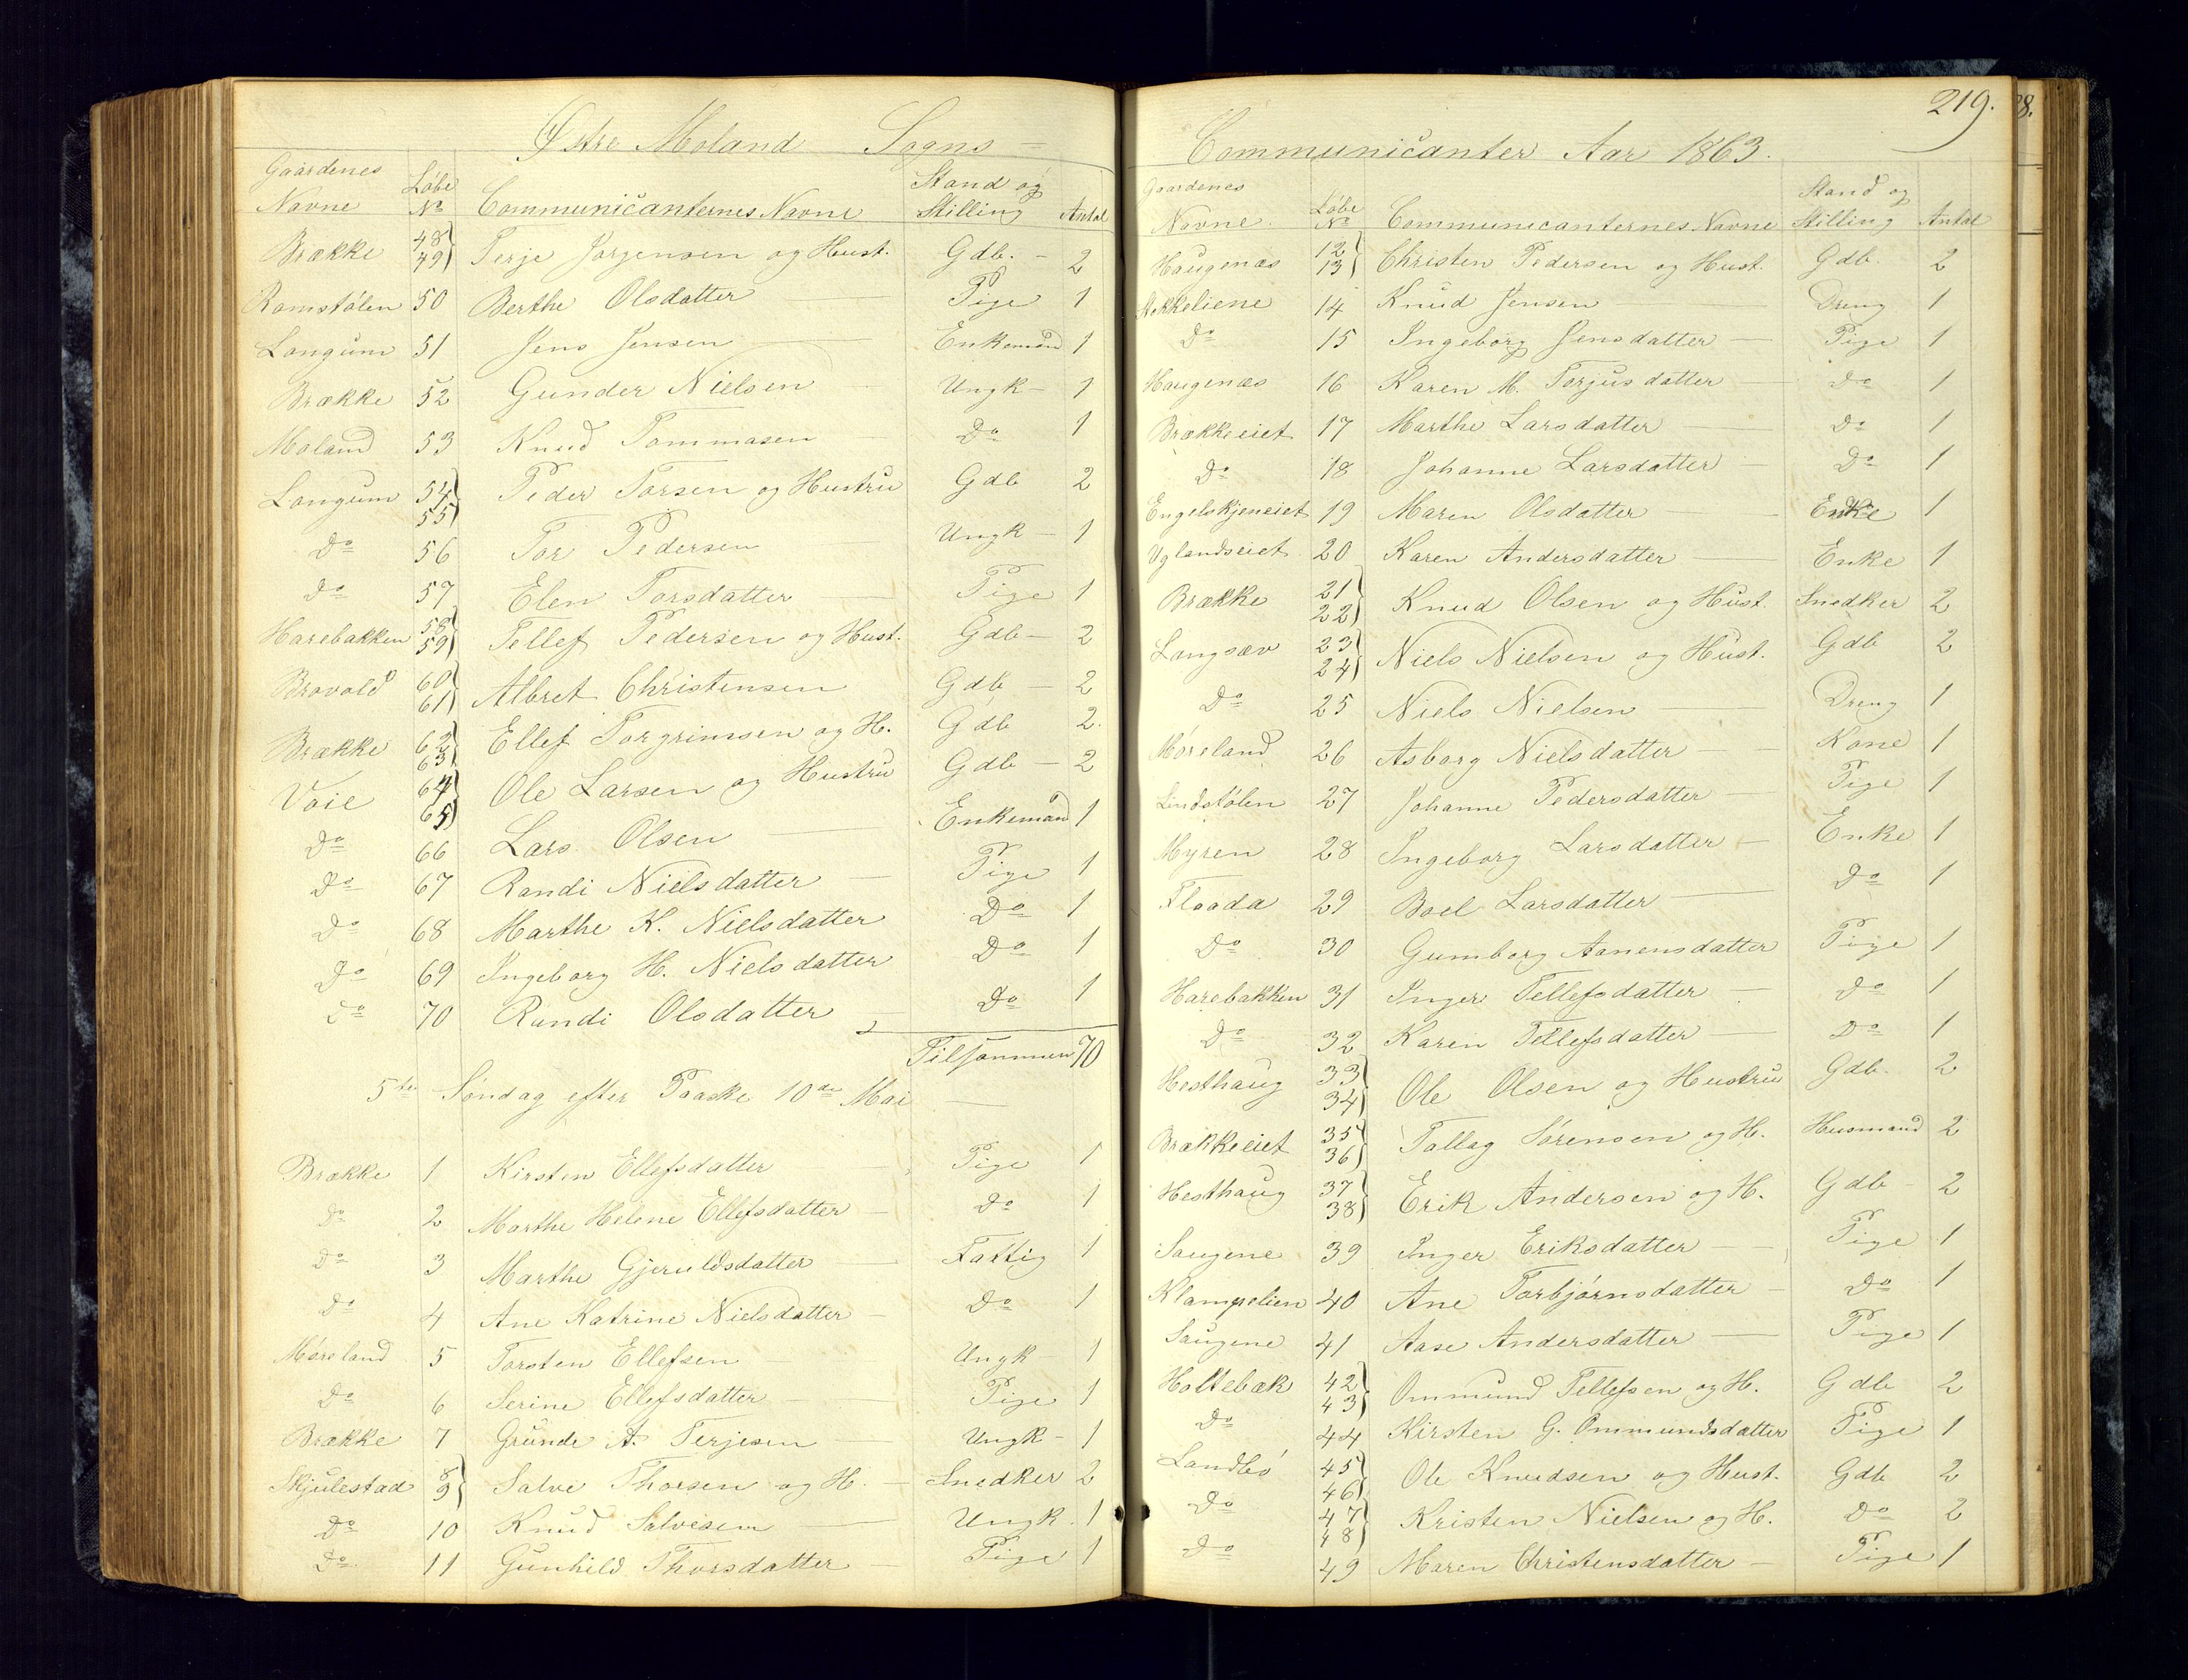 Østre Moland Sogns
Gaardenes Navne Løbe No Communicanternes Navne Stand og Stilling Antal
Brække 48 49 Terje Jørgensen og Hust. Gdb. - 2
Ramstølen 50 Berthe Olsdatter Pige 1
Longum 51 Jens Jensen Enkemand 1
Brække 52 Gunder Nielsen Ungk - 1
Moland 53 Knud Tommasen Do 1
Longum 54 55 Peder Torsen og Hustru Gdb 2
Do 56 Tor Pedersen Ungk - 1
Do 57 Elen Torsdatter Pige 1
Harebakken 58 59 Tellef Pedersen og Hust. Gdb - 2
Brovold 60 61 Albret Christensen Gdb - 2
Brække 62 63 Ellef Torgrimsen og H. Gdb 2.
Voie 64 65 Ole Larsen og Hustru Gdb - 2
Do 66 Lars Olsen Enkemand 1
Do 67 Randi Nielsdatter Pige 1
Do 68 Marthe K. Nielsdatter Do 1
Do 69 Ingeborg H. Nielsdatter Do 1
Do 70 Randi Olsdatter Do 1
Tilsammen 70
5te Søndag efter Paaske 10de Mai
Brække 1 Kirsten Ellefsdatter Pige 1
Do 2 Marthe Helene Ellefsdatter Do 1
Do 3 Marthe Gjeruldsdatter Fattig 1
Do 4 Ane Katrine Nielsdatter Do 1
Møreland 5 Torsten Ellefsen Ungk 1
Do 6 Serine Ellefsdatter Pige 1
Brække 7 Grunde A. Terjesen Ungk - 1
Skjulestad 8 9 Salve Thorsen og H. Snedker 2
Do 10 Knud Salvesen Ungk. 1
Do 11 Gunhild Thorsdatter Pige 1
219.
Communicanter Aar 1863.
Gaardenes Navne. Løbe No Communicanternes Navne Stand og Stilling Antal
Haugenæs 12 13 Christen Pedersen og Hust. Gdb. 2
14 Knud Jensen Dreng 1
Do 15 Ingeborg Jensdatter Pige 1
Haugenæs 16 Karen M. Torjusdatter Do 1
Brækkeeiet 17 Marthe Larsdatter Do 1
Do 18 Johanne Larsdatter Do 1
Engelskjøneiet 19 Maren Olsdatter Enke 1
Uglandseiet 20 Karen Andersdatter Enke 1
Brække 21 22 Knud Olsen og Hust. Snedker 2
Langsæv 23 24 Niels Nielsen og Hust. Gdb 2
Do 25 Niels Nielsen Dreng 1
Møreland 26 Asborg Nielsdatter Kone 1
Lindstølen 27 Johanne Pedersdatter Pige 1
Myren 28 Ingeborg Larsdatter Enke 1
Flaada 29 Boel Larsdatter Do 1
Do 30 Gumborg Aanensdatter Pige 1
Harebakken 31 Inger Tellefsdatter Do 1
Do 32 Karen Tellefsdatter Do 1
Hesthaug 33 34 Ole Olsen og Hustru Gdb. 2
Brækkeeiet 35 36 Tallag Sørensen og H. Husmand 2
Hesthaug 37 38 Erik Andersen og H. Gdb 2
Saugene 39 Inger Eriksdatter Pige 1
Klampelien 40 Ane Torbjørnsdatter Do 1
Saugene 41 Aase Andersdatter Pige 1
Holtebæk 42 43 Ommund Tellefsen og H. Gdb 2
Do 44 Kirsten G. Ommundsdatter Pige 1
Landbö 45 46 Ole Knudsen og Hust. Gdb 2
Do 47 48 Kristen Nielsen og H. Do 2
Do 49 Maren Christensdatter Pige 1